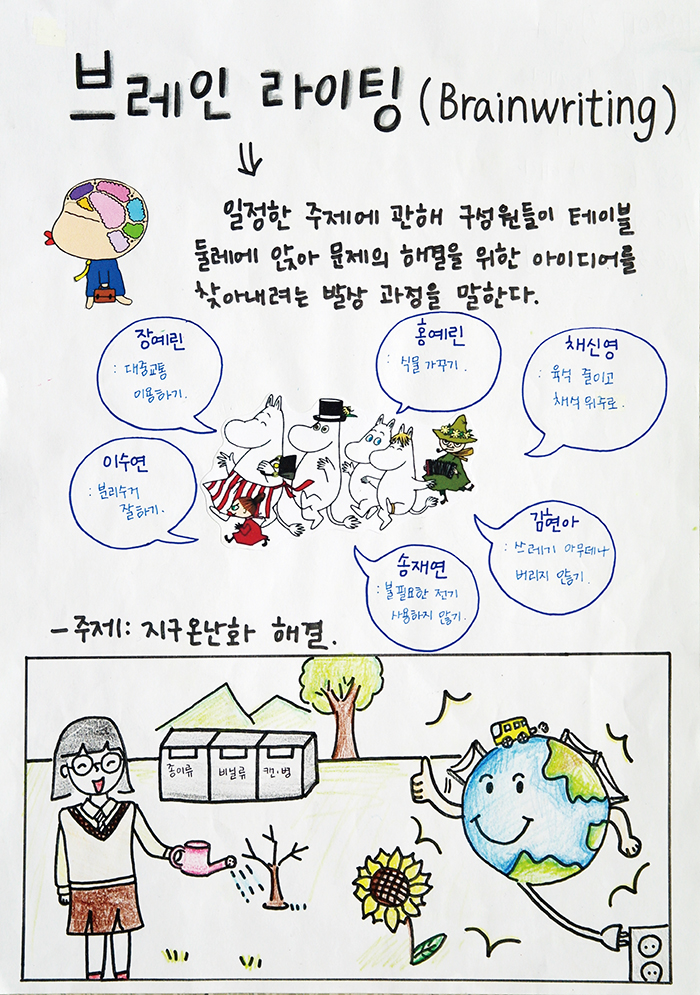 브레인 라이팅 (Brainwriting)
일정한 주제에 관해 구성원들이 테이블
둘레에 앉아 문제의 해결을 위한 아이디어를
찾아내려는 발상 과정을 말한다.
장예린
: 대중교통
이용하기.
홍예린
: 식물 가꾸기.
채신영
: 육식 줄이고
채식 위주로.
이수연
: 분리수거
잘하기.
김현아
: 쓰레기 아무데나
버리지 않기.
송재연
: 불필요한 전기
사용하지 않기.
-주제: 지구온난화 해결.
종이류
비닐류
캔·병